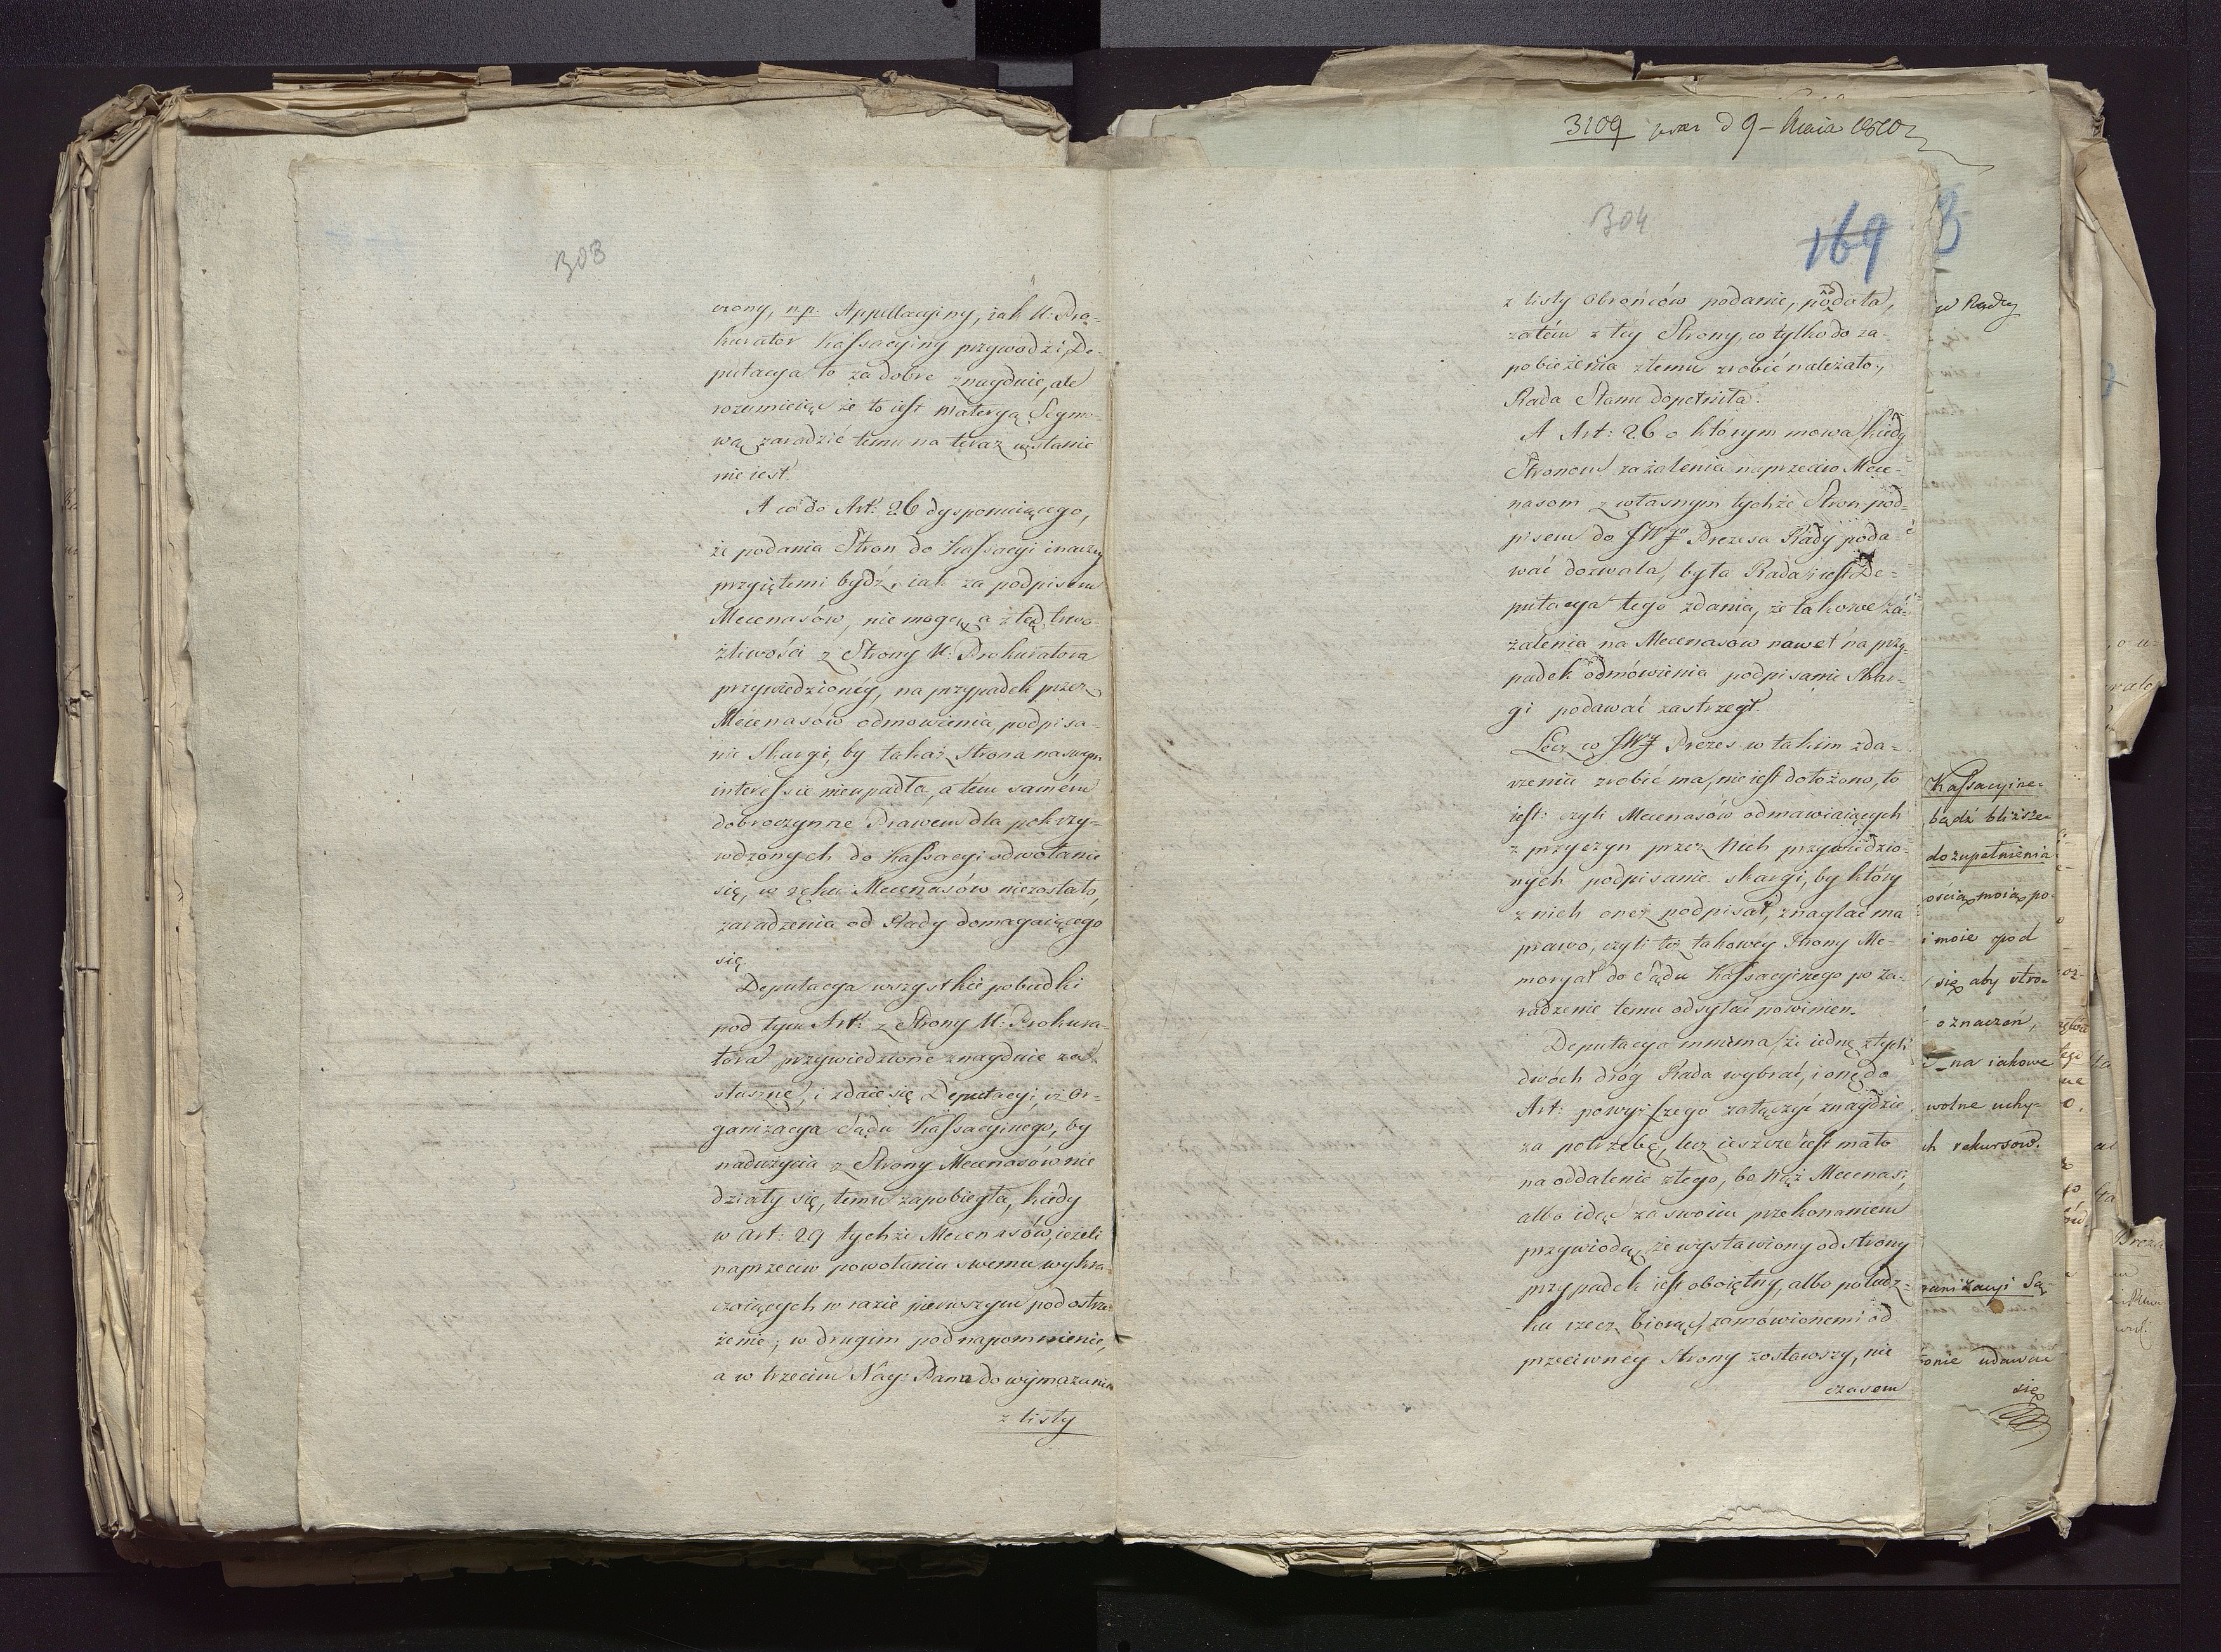 303
czony, np. Appellacyiny, iak U: Pro-
kurator Kassacyiny przywodzi, De-
putacya to za dobre znayduie, ale
rozumieiąc że to iest materyą Seymo-
wą zaradzić temu na teraz w stanie
nie iest.
A co do Art: 26 dysponuiącego,
że podania Stron do Kassacyi inaczey
przyiętemi bydź, iak za podpisem
Mecenasów, nie mogą, a ztąd trwo-
żliwości z Strony U: Prokuratora
przywiedzioney, na przypadek przez
Mecenasów odmowienia, podpisa-
nie skargi, by takaż Strona na swym
interessie nieupadła, a tém samém
dobroczynne Prawem dla pokrzy-
wdzonych do Kassacyi odwołanie
się, w ręku Mecenasów niezostało,
zaradzenia od Rady domagaiącego
się.
Deputacya wszystkie pobudki
pod tym Art: z Strony U: Prokura-
tora przywiedzione znayduie za
słuszne, i zdaie się Deputacyi, iż Or-
ganizacya Sądu Kassacyinego, by
nadużycia z Strony Mecenasów nie
działy się, temu zapobiegła, kiedy
w Art: 29 tychże Mecenasów, ieżeli
naprzeciw powołaniu swemu wykra-
czaiących w razie pierwszym pod ostrze-
żenie, w drugim pod napomnienie,
a w trzecim Nay: Panu do wymazania
z listy
3109 prez d 9 - Maia 1810
304
169
z listy Obrońców podanie, poddała,
zatém z tey Strony, co tylko do za-
pobieżenia złemu zrobić należało,
Rada Stanu dopełniła.
A Art: 26 o którym mowa, kiedy
Stronom zażalenia naprzeciw Mece-
nasom z własnym tychże Stron pod-
pisem do JWgo Prezesa Rady poda-
wać dozwala, była Rada i iest De-
putacya tego zdania, że takowe za-
żalenia na Mecenasów nawet na przy-
padek odmówienia podpisania Skar-
gi podawać zastrzegł.
Lecz co JW Prezes w takim zda-
rzeniu zrobić ma, nie iest dołożono, to
iest: czyli Mecenasów odmawiaiących
z przyczyn przez Nich przywiedzio-
nych podpisanie skargi, by który
z nich onęż podpisał, znaglać ma
prawo, czyli też takowéy Strony Me-
moryał do Sądu Kassacyinego po za-
radzenie temu odsyłać powinien.
Deputacya mniema, że iednę z tych
dwóch dróg Rada wybrać, i onę do
Art: powyższego załączyć znaydzie
za potrzebę, lecz ieszcze iest mało
na oddalenie złego, bo Nóż Mecenasi,
albo idąc za swoim przekonaniem
przywiodą, że wystawiony od strony
przypadek iest oboiętny, albo po ludz-
ku rzecz biorąc, zamówionemi od
przeciwney strony zostawszy, nie
czasem
w Radzy
Kassacyine-
bądź bliższe-
do zupełnienia
ością moią po-
i moie pod
się aby stro-
oznaczeń,
na iakowe
wolne uchy-
ch rekursów.
ganizacyi Są-
onie udawać
się